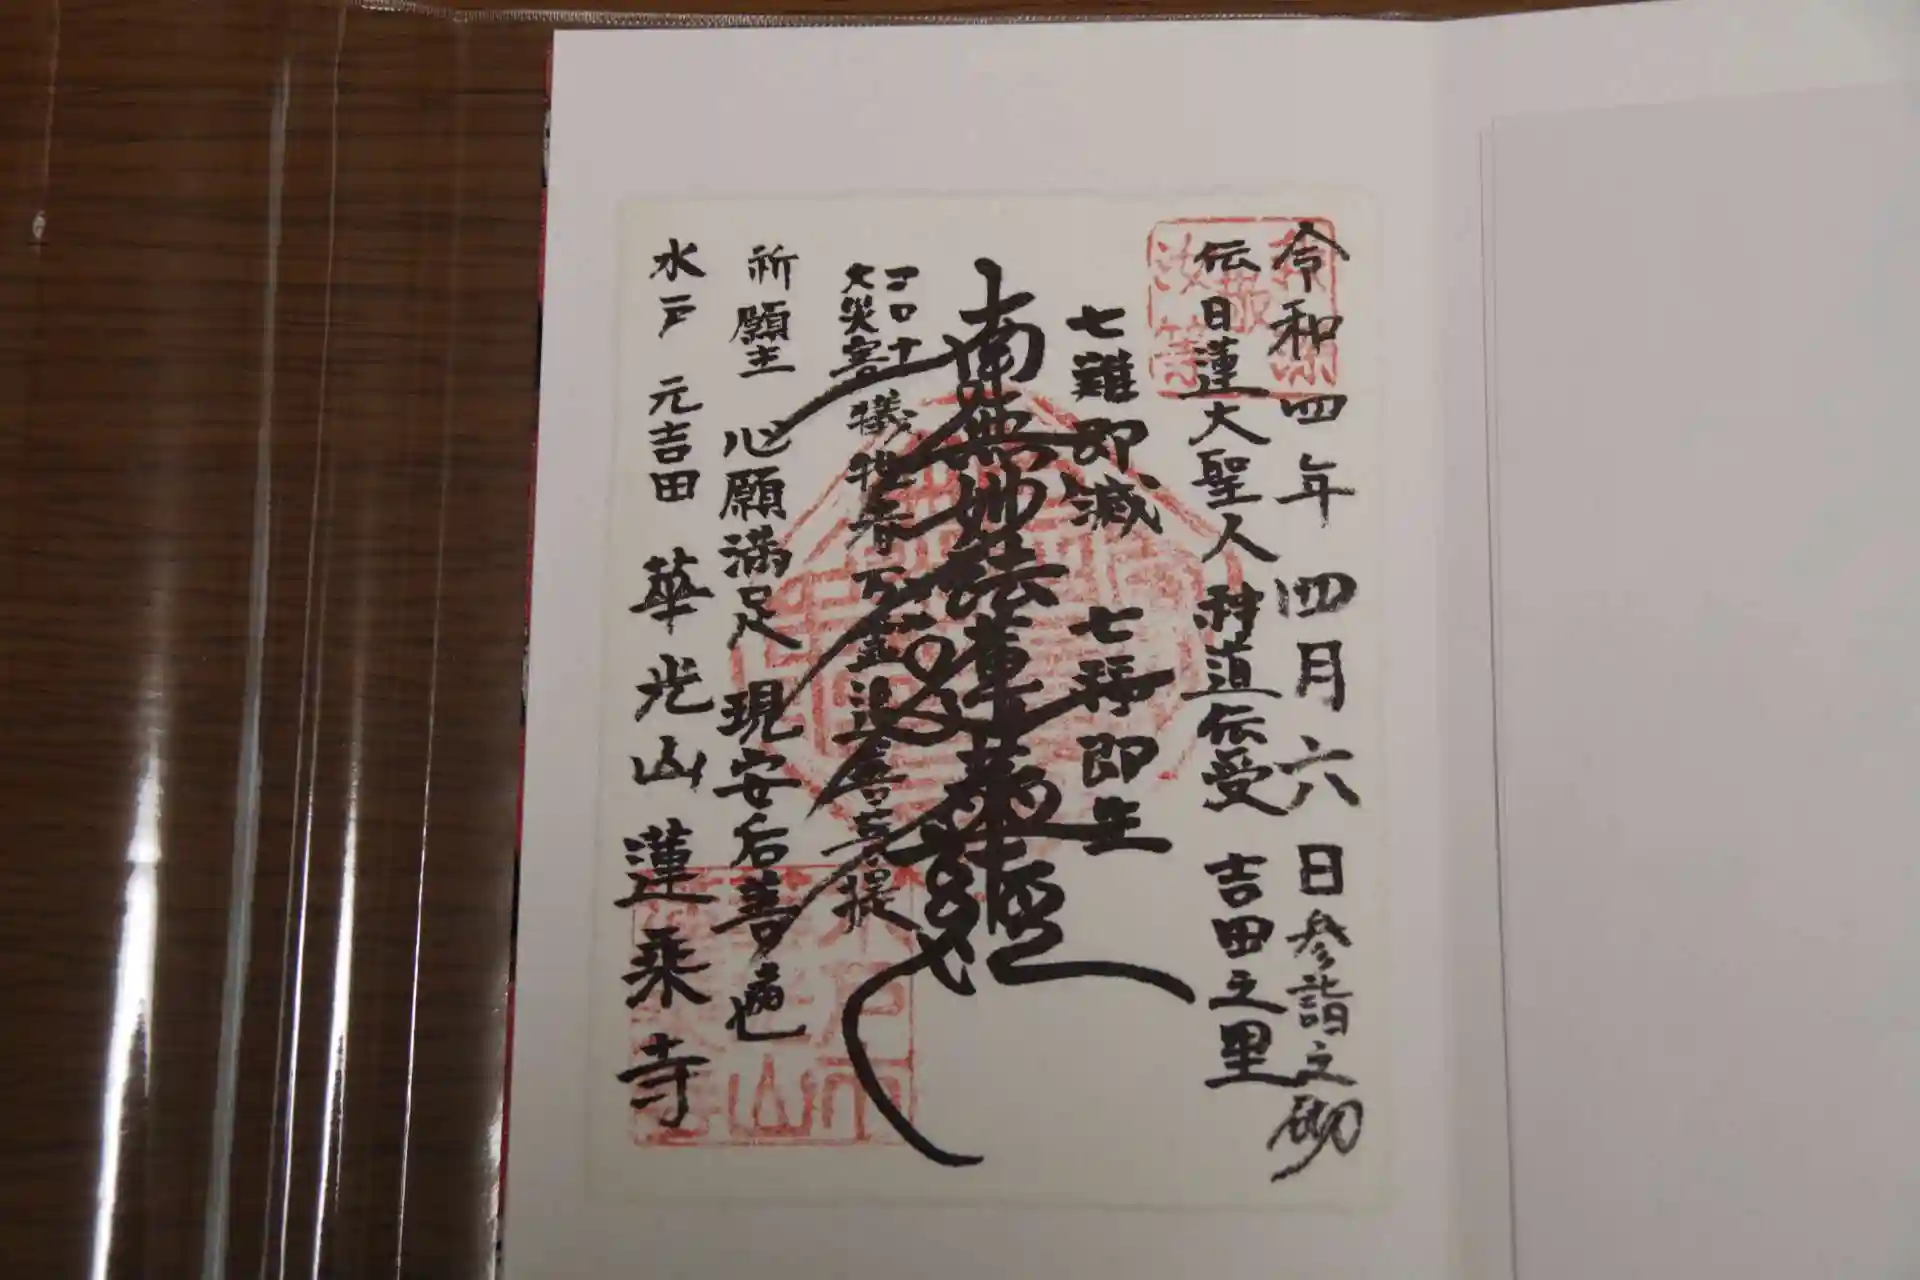 令和四年四月六日参詣之砌
伝日蓮大聖人神道伝受 吉田之里
七難即滅 七福即生
南無妙法蓮華経
コロナ
大災害
犠牲者
追善菩提
祈願主 心願満足 現安后善
水戸 元吉田 華光山蓮乗寺